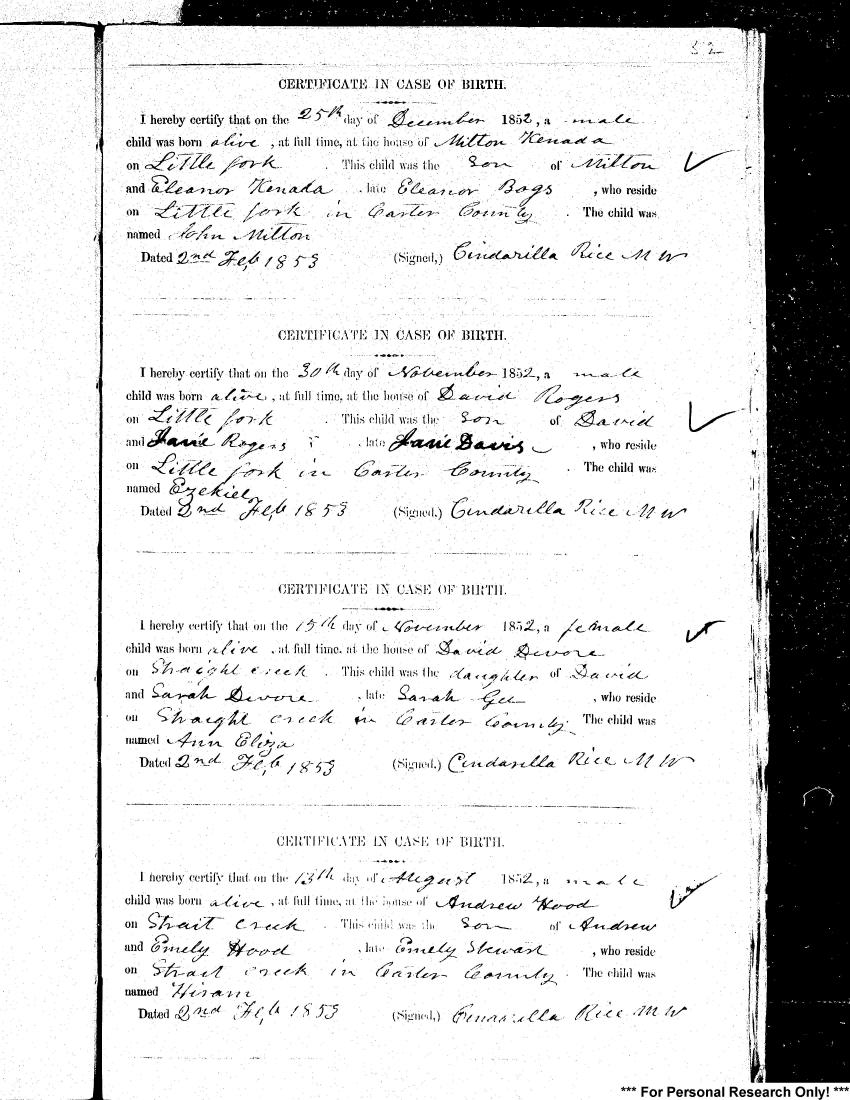 52
CERTIFICATE IN CASE OF BIRTH.
I hereby certify that on the 25th day of December 1852, a male
child was born alive, at full time, at the house of Milton Kenada
on Little fork . This child was the Son of Milton
and Eleanor Kenada , late Eleanor Bogs , who reside
on Little fork in Carter County . The child was
named John Milton
Dated 2nd Feb 1853 (Signed,) Cindarilla Rice M W
CERTIFICATE IN CASE OF BIRTH.
I hereby certify that on the 30th day of November 1852, a male
child was born alive, at full time, at the house of David Rogers
on Little fork . This child was the Son of David
and Jane Rogers , late Jane Davis , who reside
on Little fork in Carter County . The child was
named Ezekiel
Dated 2nd Feb 1853 (Signed,) Cindarilla Rice M W
CERTIFICATE IN CASE OF BIRTH.
I hereby certify that on the 15th day of November 1852, a female
child was born alive, at full time, at the house of David Devore
on Straight creek . This child was the daughter of David
and Sarah Devore , late Sarah Gee , who reside
on Straight creek in Carter County The child was
named Ann Eliza
Dated 2nd Feb 1853 (Signed,) Cindarilla Rice M W
CERTIFICATE IN CASE OF BIRTH.
I hereby certify that on the 13th day of August 1852, a male
child was born alive, at full time, at the house of Andrew Hood
on Strait Creek . This child was the Son of Andrew
and Emely Hood , late Emely Stewart , who reside
on Strait creek in Carter County . The child was
named Hiram
Dated 2nd Feb 1853 (Signed,) Cindarilla Rice M W
*** For Personal Research Only! ***